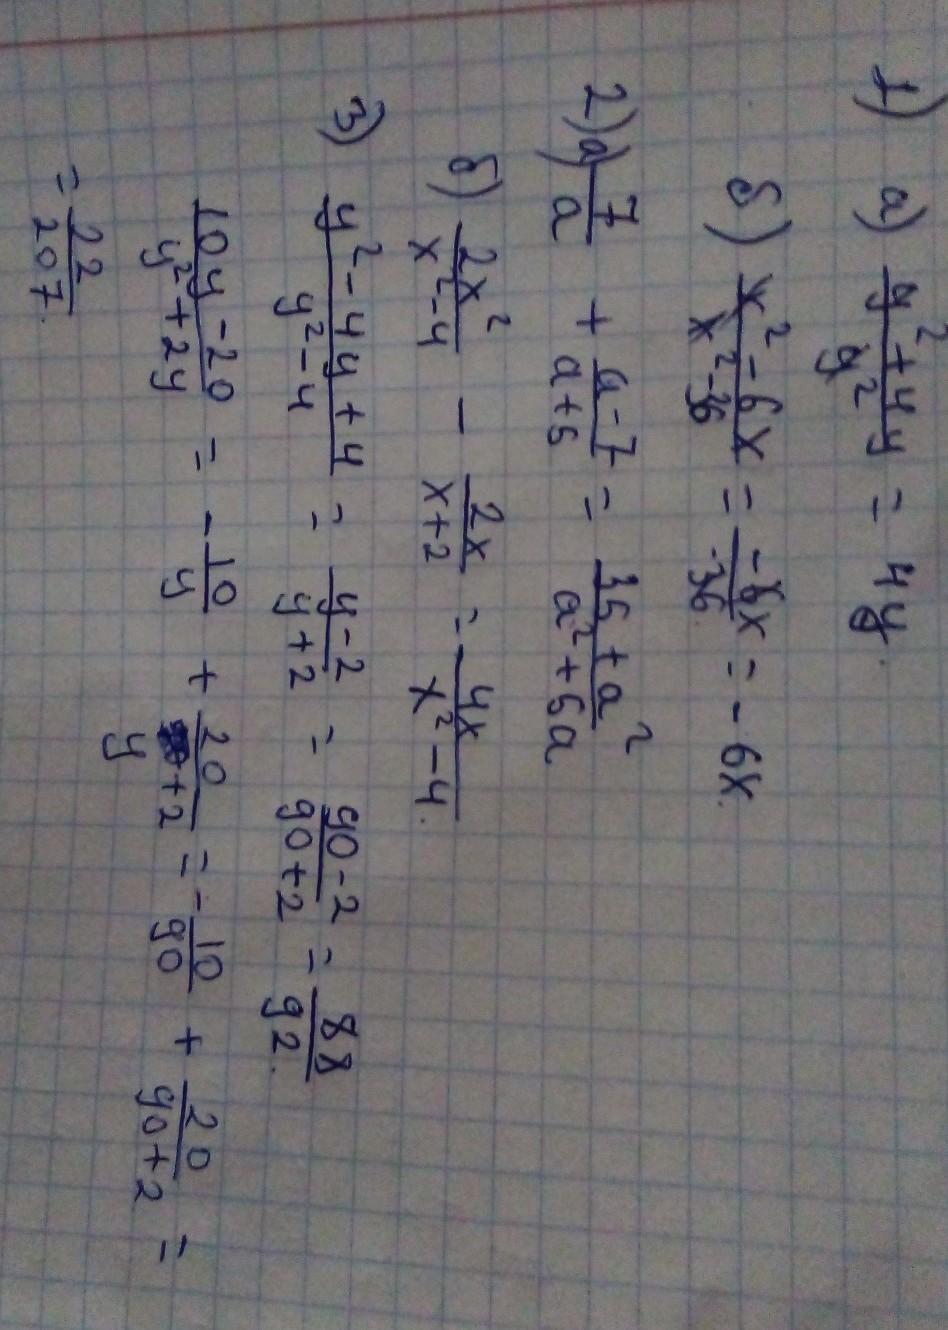 1) а) (y² + 4y)/y² = 4y.
б) (x² - 6x)/(x² - 36) = (-6x)/(-36) = - 6x.
2) а) 7/a + (a - 7)/(a + 5) = (35 + a²)/(a² + 5a)
б) 2x²/(x² - 4) - 2x/(x + 2) = 4x/(x² - 4).
3) (y² - 4y + 4)/(y² - 4) = (y - 2)/(y + 2) = (90 - 2)/(90 + 2) = 88/92.
(10y - 20)/(y² + 2y) = - 10/y + 20/(y + 2) = - 10/90 + 20/(90 + 2) =
= 22/207.